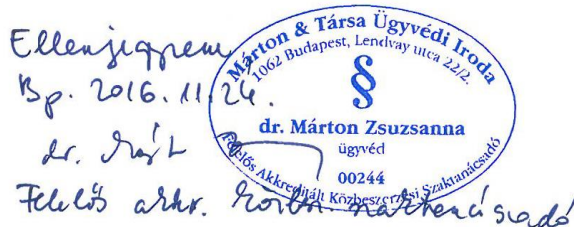 Ellenjegyzem
Bp. 2016. 11. 24.
dr.
Felelős akkr. közb. szaktanácsadó
Márton & Társa Ügyvédi Iroda
1062 Budapest, Lendvay utca 22/2.
§
dr. Márton Zsuzsanna
ügyvéd
00244
Felelős Akkreditált Közbeszerzési Szaktanácsadó